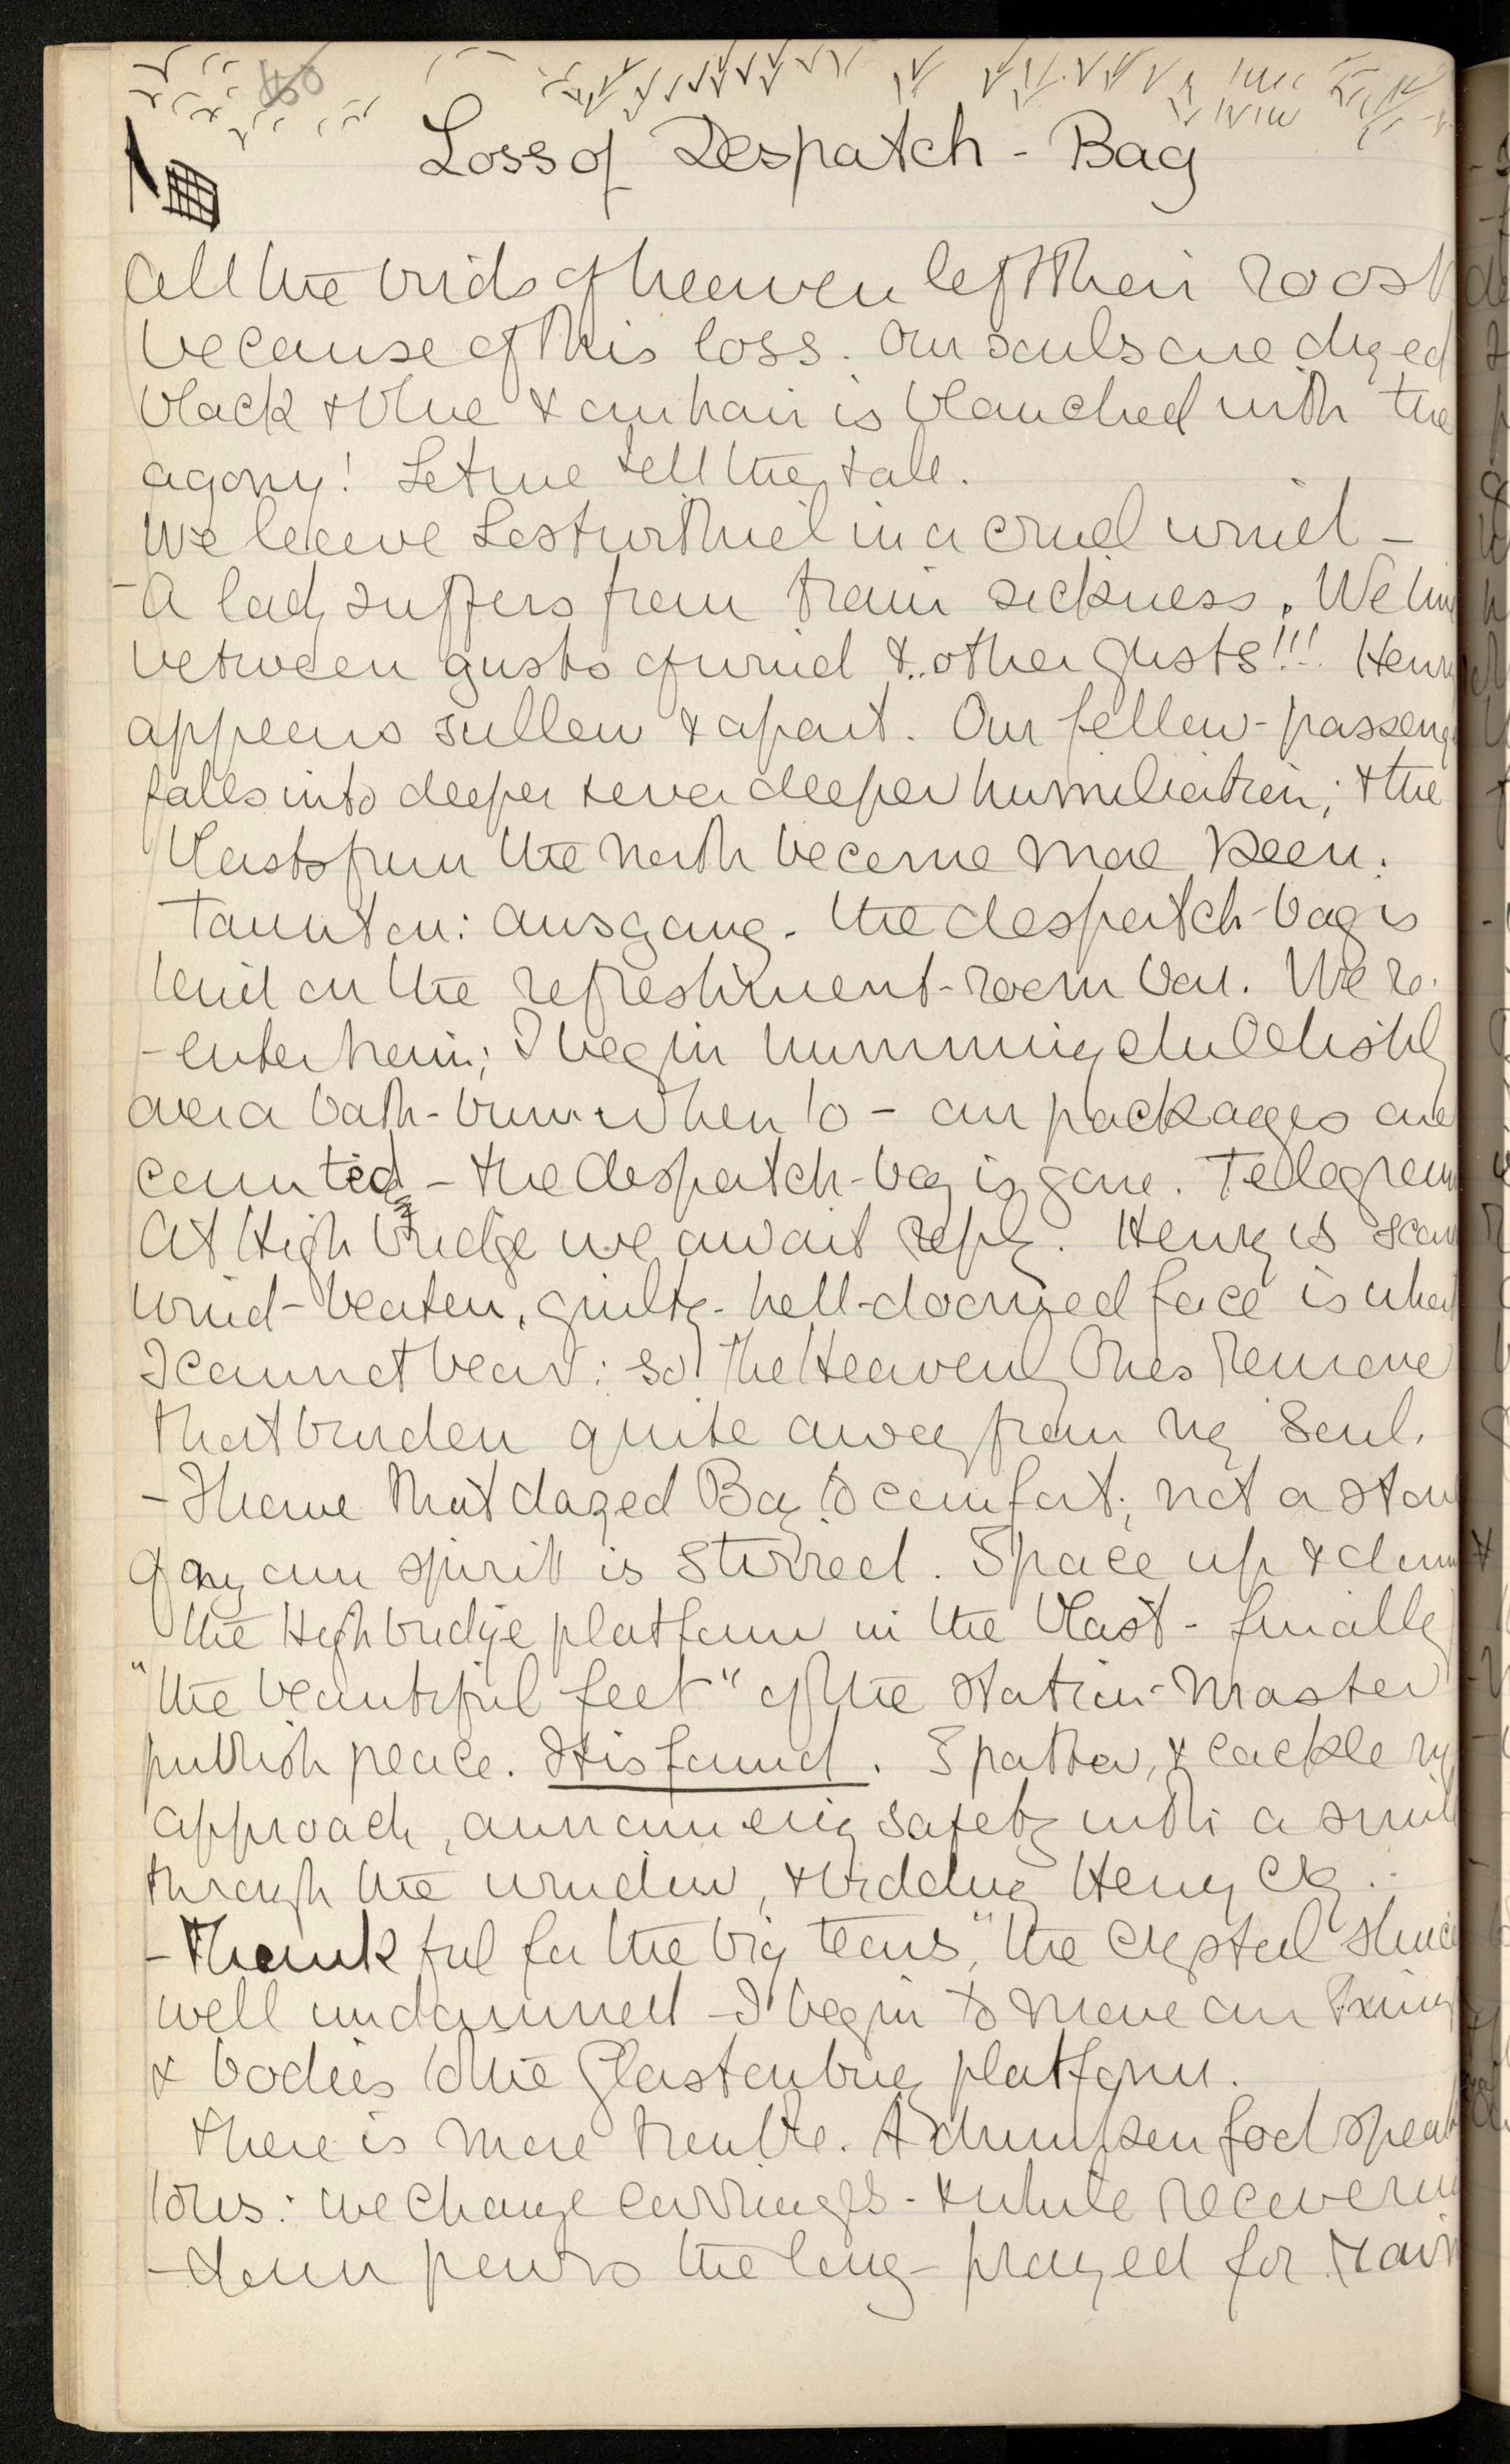 60
Loss of Despatch - Bag
All the birds of heaven left their roost
because of this loss. Our souls are dyed
black & blue & our hair is blanched with the
agony! Let me tell the tale.
We leave Lostwithiel in a cruel wind -
- A lady suffers from train sickness. We
between gusts of wind & .. other gusts!!! Henry
appears sullen & apart. Our fellow-passeng
falls into deeper & ever deeper humiliation; & the
blasts from the North become more keen.
Taunton: Ausgang. The despatch-bag is
laid on the refreshment-room bar. We re-
-enter train; I begin humming childishly
over a bath-bun when lo - our packages are
counted - the despatch-bag is gone. Telegram
At High bridge we await reply. Henry is
wind-beaten, guilty - hell-doomed face is what
I cannot bear: so the Heavenly Ones remove
that burden quite away from my soul.
- I have that dazed Boy to comfort; not a
of my own spirit is stirred. I pace up & down
the Highbridge platform in the blast - finally
"the beautiful feet" of the Station-Master
publish peace. It is found. I &
approach, announcing safety with a smile
through the window, & bidding Henry cry.
- Thankful for the big tears, "the crystal" sluice
well undammed - I begin to move our
& bodies to the Glastonbury platform.
There is more trouble. A drunken fool speaks
to us: we change carriages - & while recovering
- down pours the long-prayed for rain